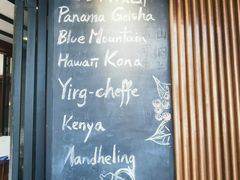 Panama Geisha
Blue Mountain
Hawaii Kona
Yirg-cheffe
Kenya
Mandheling